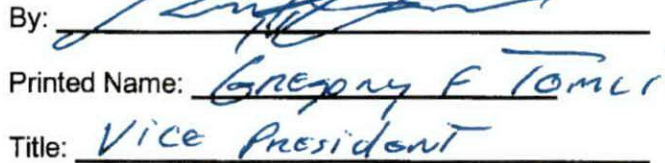 By:
Printed Name: Gregory F
Title: Vice President